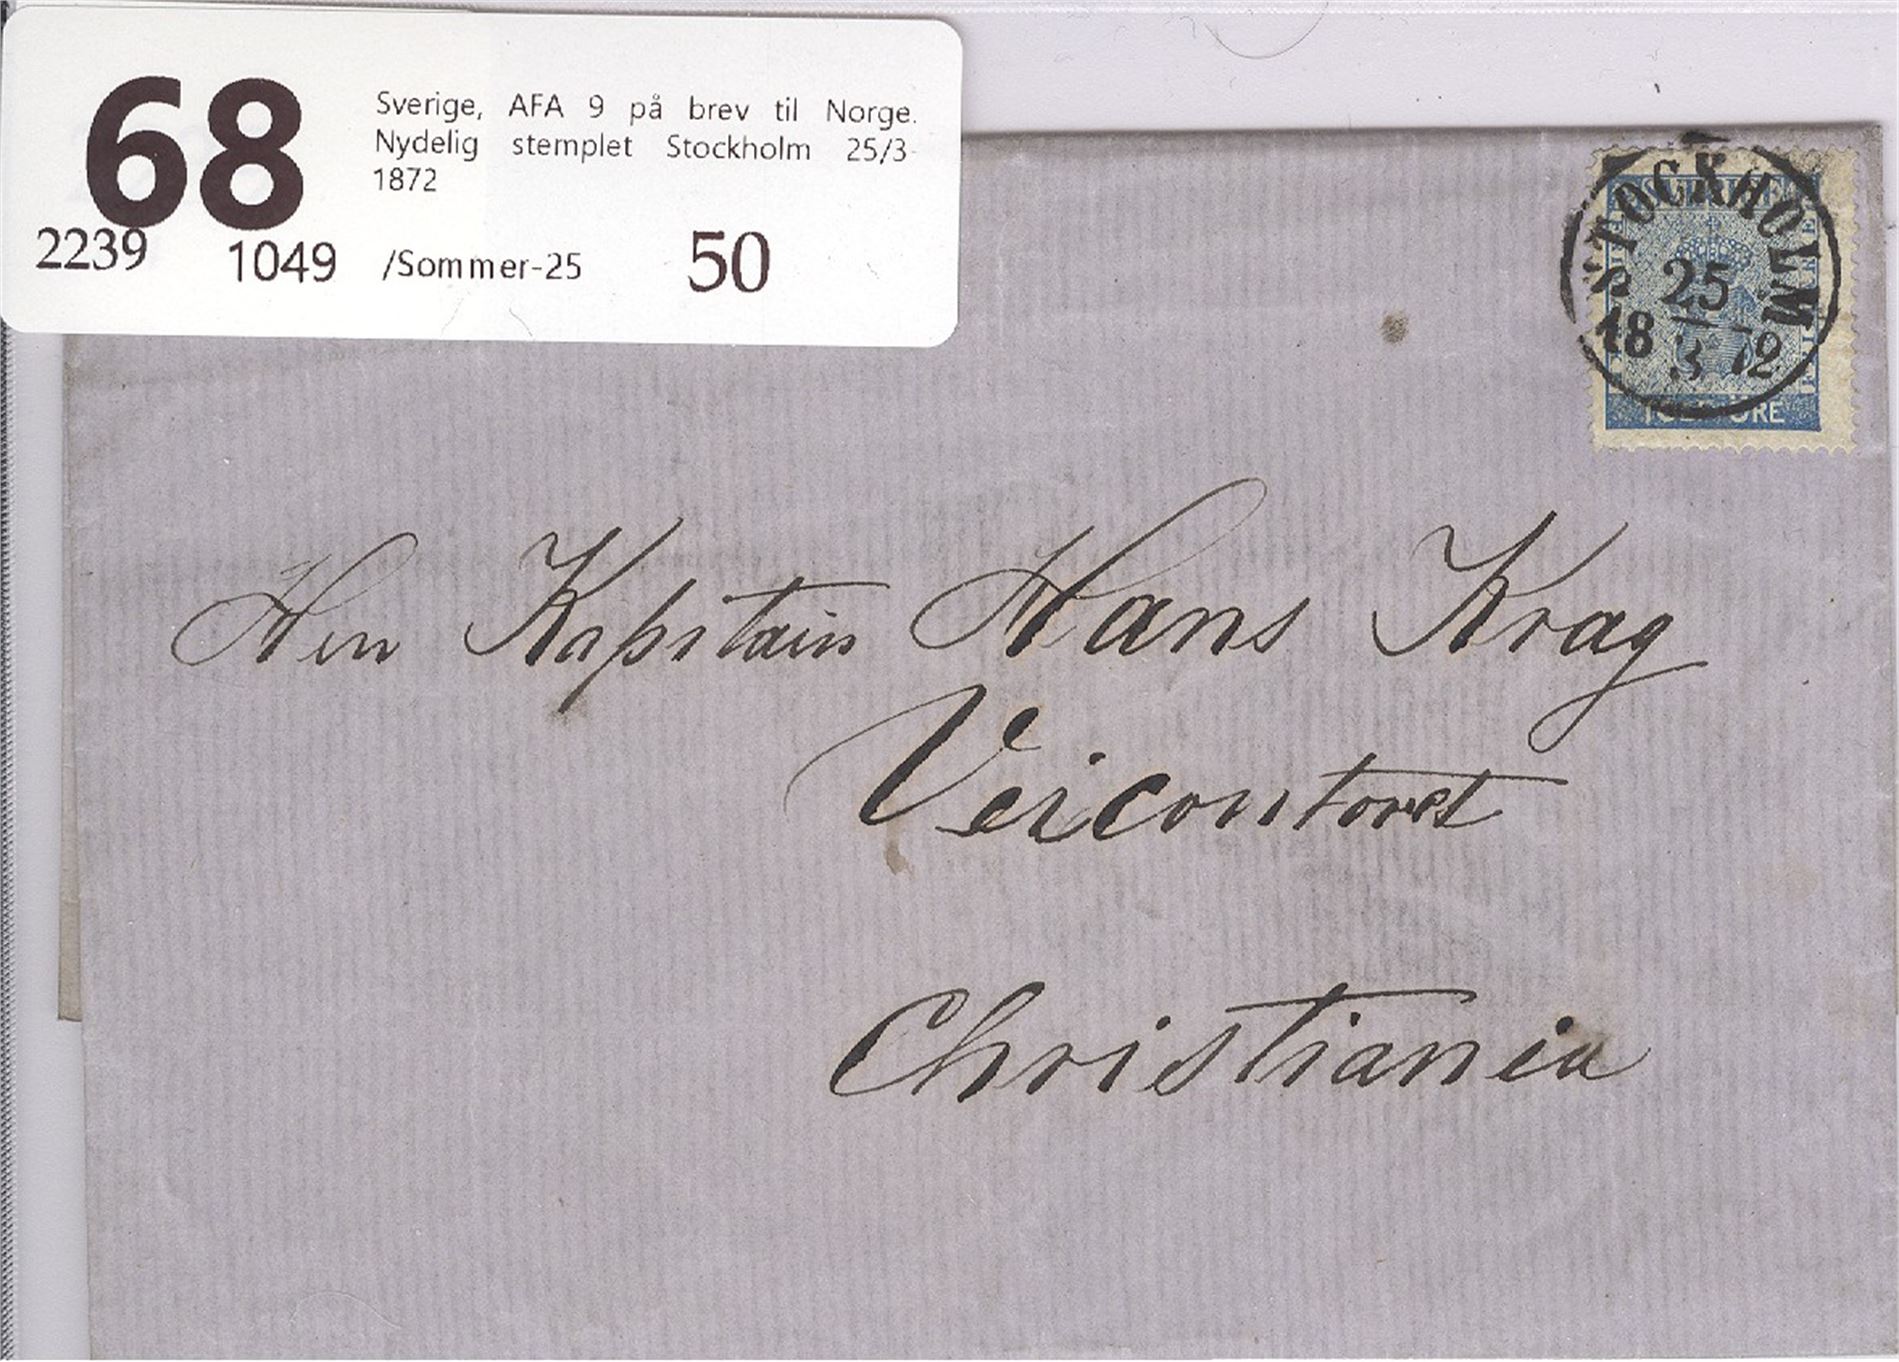 68
Sverige, AFA 9 på brev til Norge.
Nydelig stemplet Stockholm 25/3-
1872
2239 1049 /Sommer-25 50
STOCKHOLM
25
18 3 72
SVERIGE
TOLF ÖRE
Herr Kapitain Hans Krag
Veicontoret
Christiania